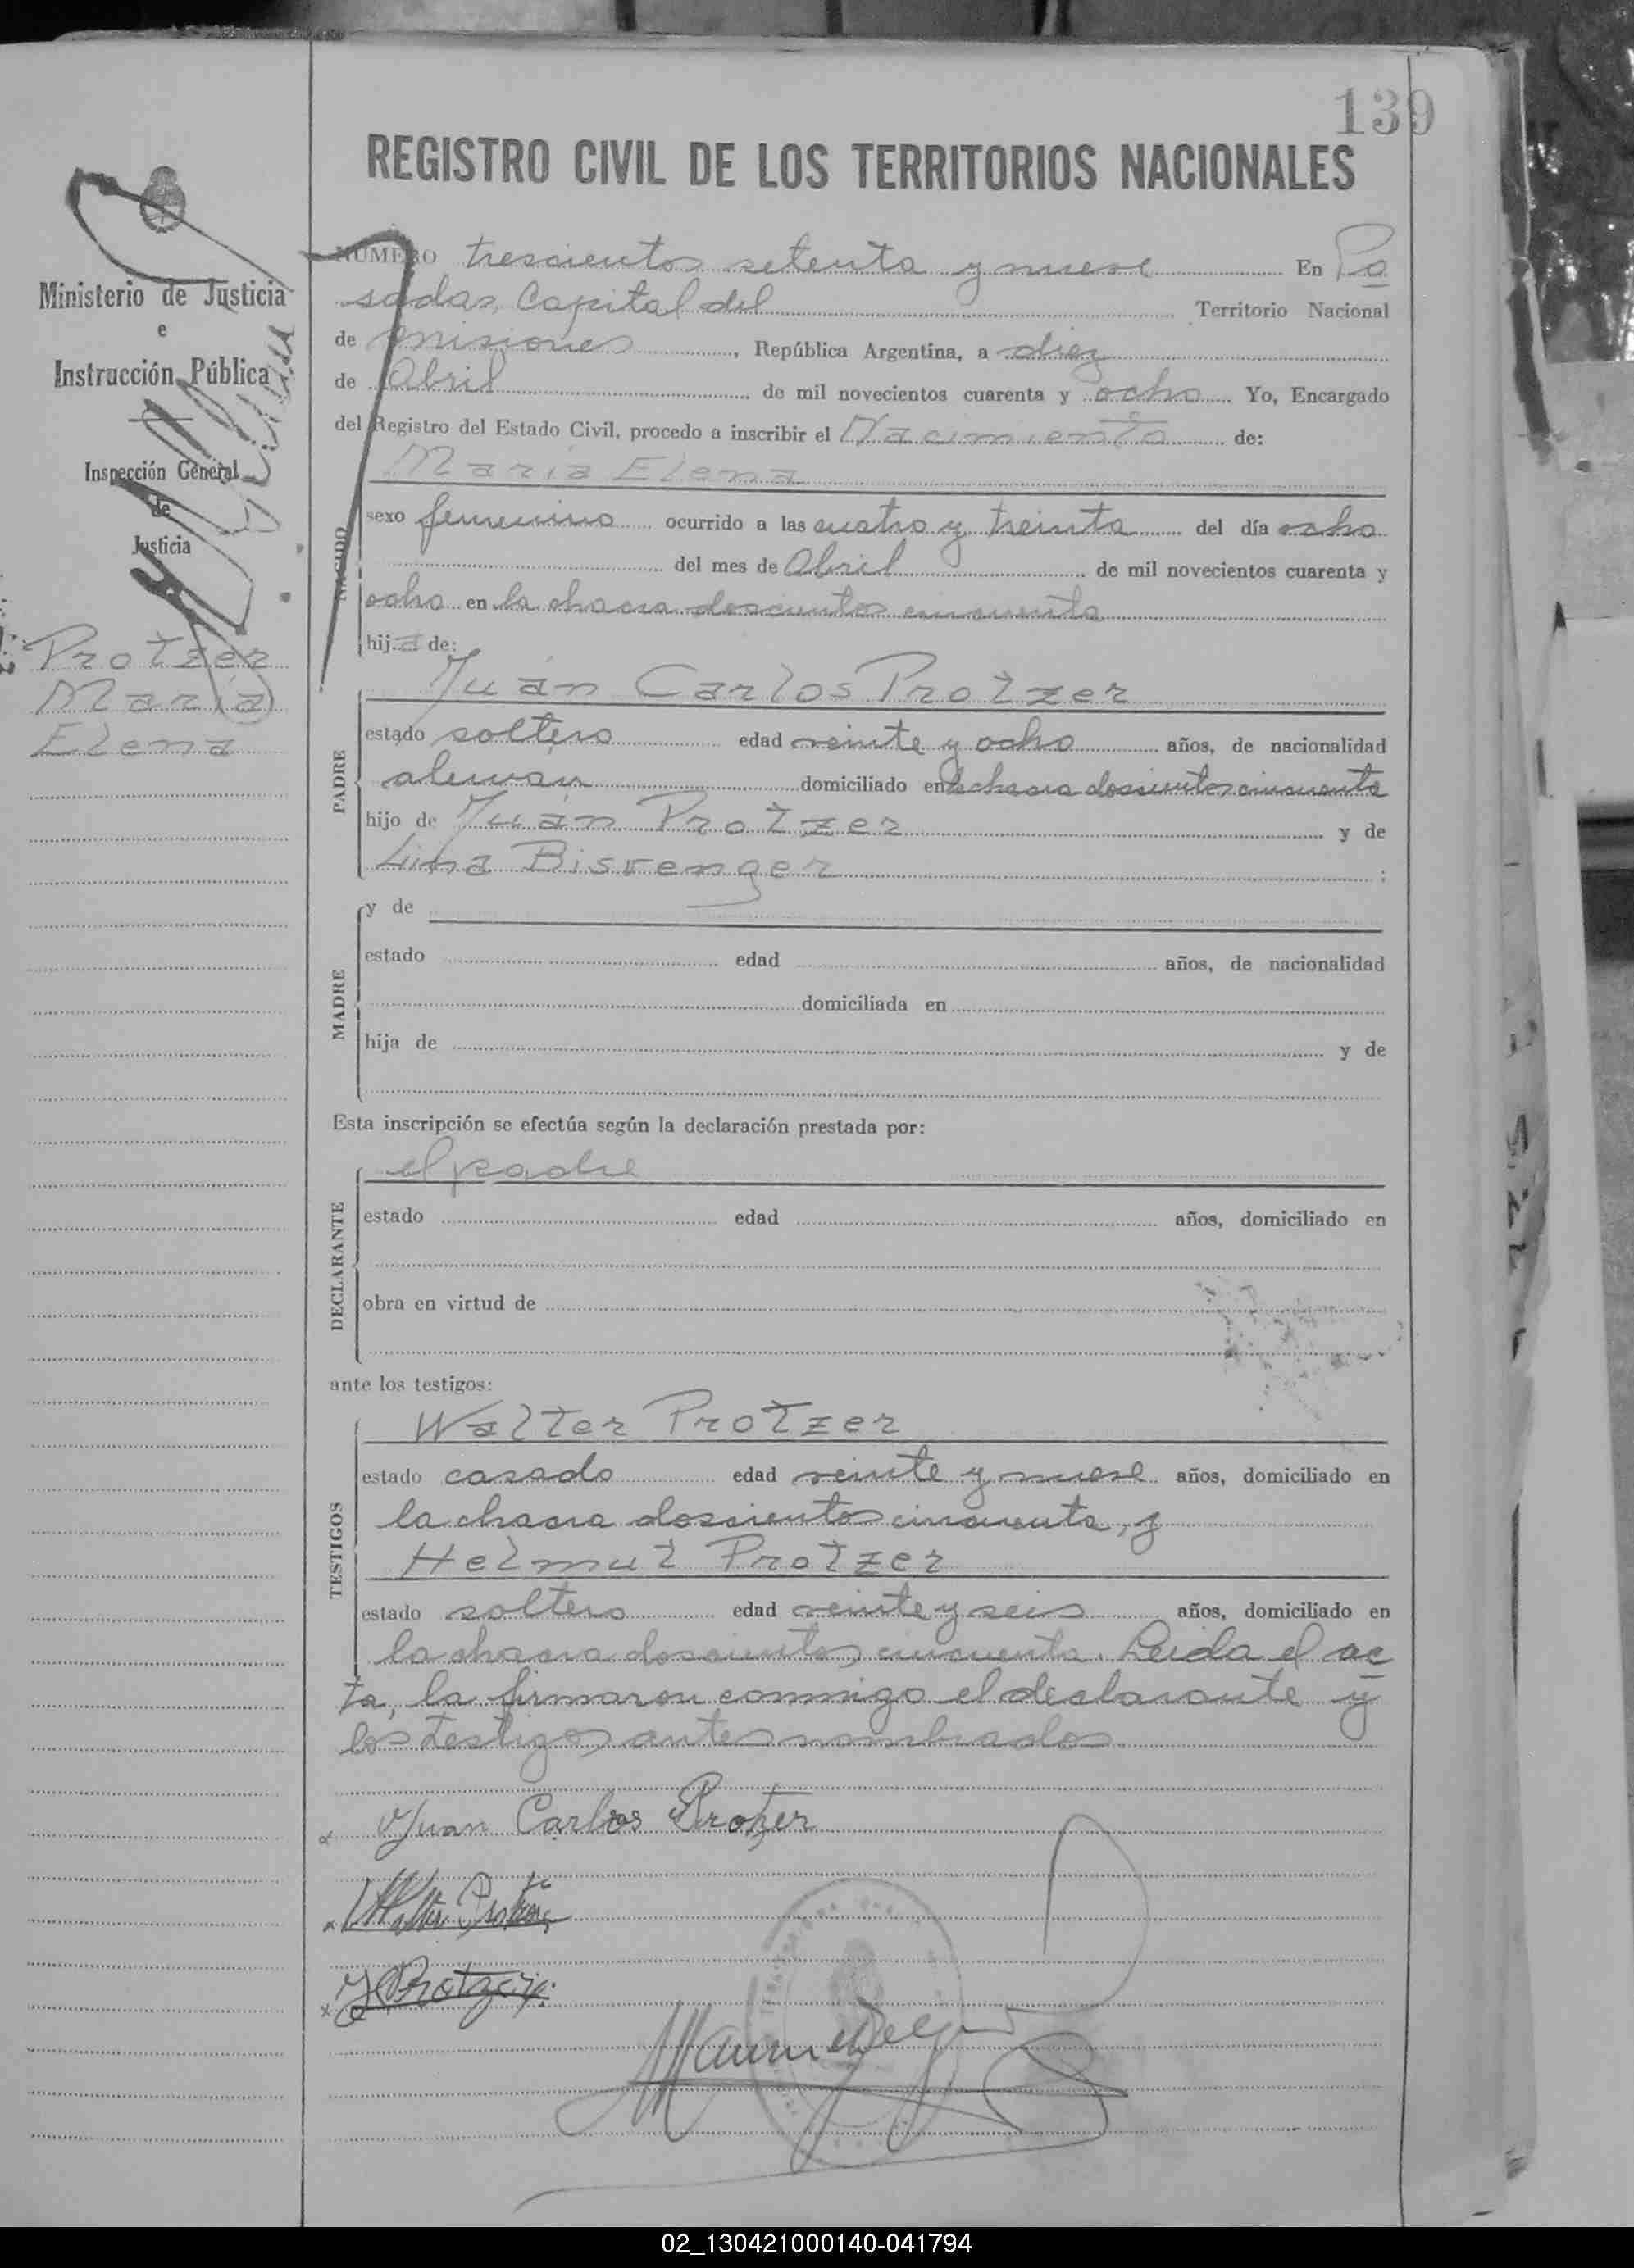 139
REGISTRO CIVIL DE LOS TERRITORIOS NACIONALES
Ministerio de Justicia
e
Instrucción Pública
Inspección General
de
Justicia
Protzer
María
Elena
NÚMERO trescientos setenta y nueve En Po
sadas, Capital del Territorio Nacional
de Misiones, República Argentina, a diez
de Abril de mil novecientos cuarenta y ocho Yo, Encargado
del Registro del Estado Civil, procedo a inscribir el Nacimiento de:
María Elena
NACIDO
sexo femenino ocurrido a las cuatro y treinta del día ocho
del mes de Abril de mil novecientos cuarenta y
ocho en la chacra doscientos cincuenta
hija de:
Juan Carlos Protzer
PADRE
estado soltero edad veinte y ocho años, de nacionalidad
alemán domiciliado en la chacra doscientos cincuenta
hijo de Juan Protzer y de
Lina Bisvenger ;
MADRE
y de
estado edad años, de nacionalidad
domiciliada en
hija de y de
Esta inscripción se efectúa según la declaración prestada por:
el padre
DECLARANTE
estado edad años, domiciliado en
obra en virtud de
ante los testigos:
Walter Protzer
TESTIGOS
estado casado edad veinte y nueve años, domiciliado en
la chacra doscientos cincuenta, y
Helmut Protzer
estado soltero edad veinte y seis años, domiciliado en
la chacra doscientos cincuenta. Leida el ac
ta, la firmaron conmigo el declarante y
los testigos antes nombrados.
Juan Carlos Protzer
Walter Protzer
Protzer
02_130421000140-041794